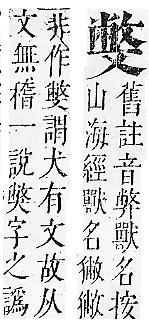 舊註音弊獸名按
山海經獸名獙獙
非作謂犬有文故从
文無稽一說獘字之譌